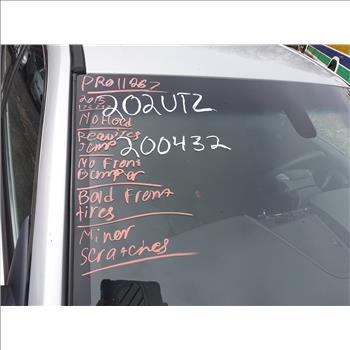 PRO11867
2015
202UTZ
No Hood
Requires
Jump
200432
No Front
Bumper
Bald Front
tires
Minor
scratches